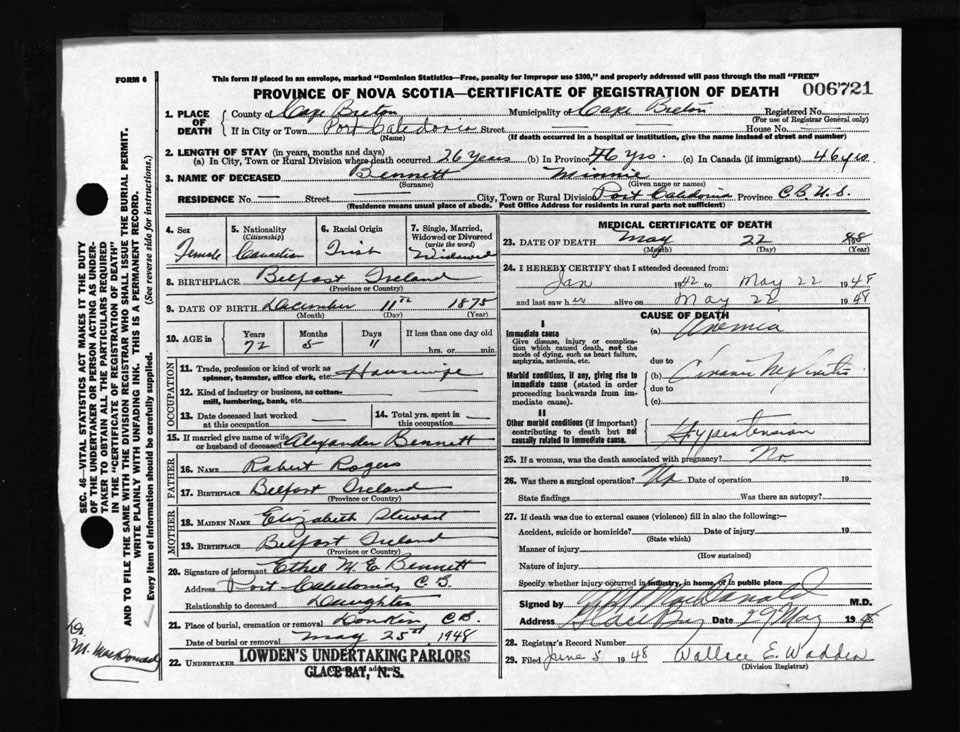 FORM 6
This form if placed in an envelope, marked "Dominion Statistics—Free, penalty for improper use $300," and properly addressed will pass through the mail "FREE"
PROVINCE OF NOVA SCOTIA—CERTIFICATE OF REGISTRATION OF DEATH 006721
1. PLACE OF DEATH { County of Cape Breton Municipality of Cape Breton Registered No.
(For use of Registrar General only)
If in City or Town Port Caledonia Street House No. —
(Name) (If death occurred in a hospital or institution, give the name instead of street and number)
2. LENGTH OF STAY (in years, months and days)
(a) In City, Town or Rural Division where death occurred 26 years (b) In Province 46 yrs. (c) In Canada (if immigrant) 46 yrs
3. NAME OF DECEASED Bennett Minnie
(Surname) (Given name or names)
RESIDENCE No. — Street City, Town or Rural Division Port Caledonia Province C.B. N.S.
(Residence means usual place of abode. Post Office Address for residents in rural parts not sufficient)
4. Sex 5. Nationality (Citizenship) 6. Racial Origin 7. Single, Married, Widowed or Divorced (write the word)
Female Canadian Irish Widowed
8. BIRTHPLACE Belfast Ireland
(Province or Country)
9. DATE OF BIRTH December 11th 1875
(Month) (Day) (Year)
10. AGE in { Years Months Days If less than one day old
72 5 11 hrs. or min.
OCCUPATION
11. Trade, profession or kind of work as spinner, teamster, office clerk, etc. Housewife
12. Kind of industry or business, as cotton-mill, lumbering, bank, etc.
13. Date deceased last worked at this occupation
14. Total yrs. spent in this occupation
15. If married give name of wife or husband of deceased Alexander Bennett
FATHER
16. NAME Robert Rogers
17. BIRTHPLACE Belfast Ireland
(Province or Country)
MOTHER
18. MAIDEN NAME Elizabeth Stewart
19. BIRTHPLACE Belfast Ireland
(Province or Country)
20. Signature of informant Ethel M. E. Bennett
Address Port Caledonia, C.B.
Relationship to deceased Daughter
21. Place of burial, cremation or removal Donkin, C.B.
Date of burial or removal May 25th 1948
22. UNDERTAKER LOWDEN'S UNDERTAKING PARLORS
GLACE BAY, N. S.
MEDICAL CERTIFICATE OF DEATH
23. DATE OF DEATH May 22 48
(Month) (Day) (Year)
24. I HEREBY CERTIFY that I attended deceased from:
Jan 1942 to May 22 1948
and last saw her alive on May 22 1948
CAUSE OF DEATH
I
Immediate cause (a) Uremia
Give disease, injury or complication which caused death, not the mode of dying, such as heart failure, asphyxia, asthenia, etc.
due to
Morbid conditions, if any, giving rise to immediate cause (stated in order proceeding backwards from immediate cause).
(b) Chronic Nephritis
due to
(c)
II
Other morbid conditions (if important) contributing to death but not causally related to immediate cause.
Hypertension
25. If a woman, was the death associated with pregnancy? No
26. Was there a surgical operation? No Date of operation 19
State findings Was there an autopsy?
27. If death was due to external causes (violence) fill in also the following:—
Accident, suicide or homicide? Date of injury 19
(State which)
Manner of injury
(How sustained)
Nature of injury
Specify whether injury occurred in industry, in home, or in public place
Signed by M. MacDonald M.D.
Address Glace Bay Date 29 May 1948
28. Registrar's Record Number
29. Filed June 5 1948 Wallace E. Wadden
(Division Registrar)
SEC. 46—VITAL STATISTICS ACT MAKES IT THE DUTY
OF THE UNDERTAKER OR PERSON ACTING AS UNDER-
TAKER TO OBTAIN ALL THE PARTICULARS REQUIRED
IN THE "CERTIFICATE OF REGISTRATION OF DEATH"
AND TO FILE THE SAME WITH THE DIVISION REGISTRAR WHO SHALL ISSUE THE BURIAL PERMIT.
WRITE PLAINLY WITH UNFADING INK. THIS IS A PERMANENT RECORD.
Every item of information should be carefully supplied. (See reverse side for instructions.)
Dr.
M. MacDonald